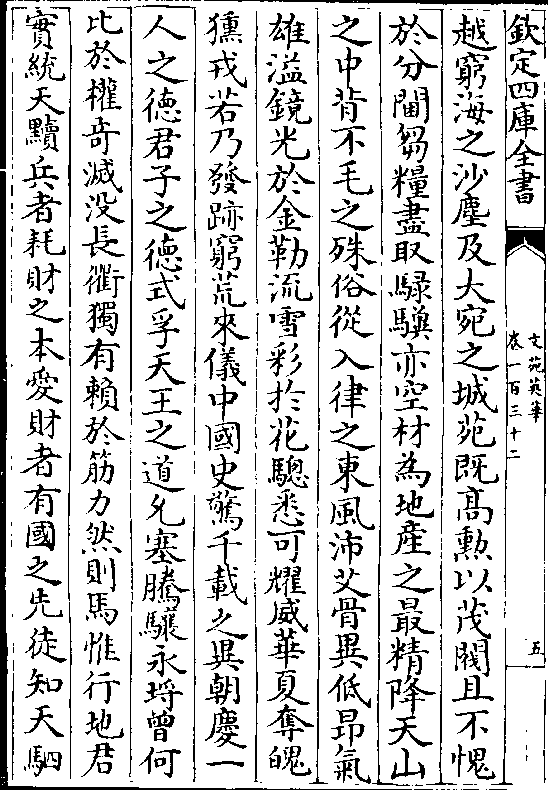 欽定四庫全書
文苑英華
卷一百三十二
五
越窮海之沙塵及大宛之城苑既髙勲以茂閥且不愧
於分閫芻糧盡取騄驥亦空材為地産之最精降天山
之中背不毛之殊俗從入律之東風沛艾骨異低昂氣
雄溢鏡光於金勒流雪彩於花驄悉可耀威華夏奪魄
獯戎若乃發跡窮荒來儀中國史驚千載之異朝慶一
人之徳君子之徳式孚天王之道允塞騰驤永埒曾何
比於權竒滅没長衢獨有賴於筋力然則馬惟行地君
實統天黷兵者耗財之本愛財者有國之先徒知天駟